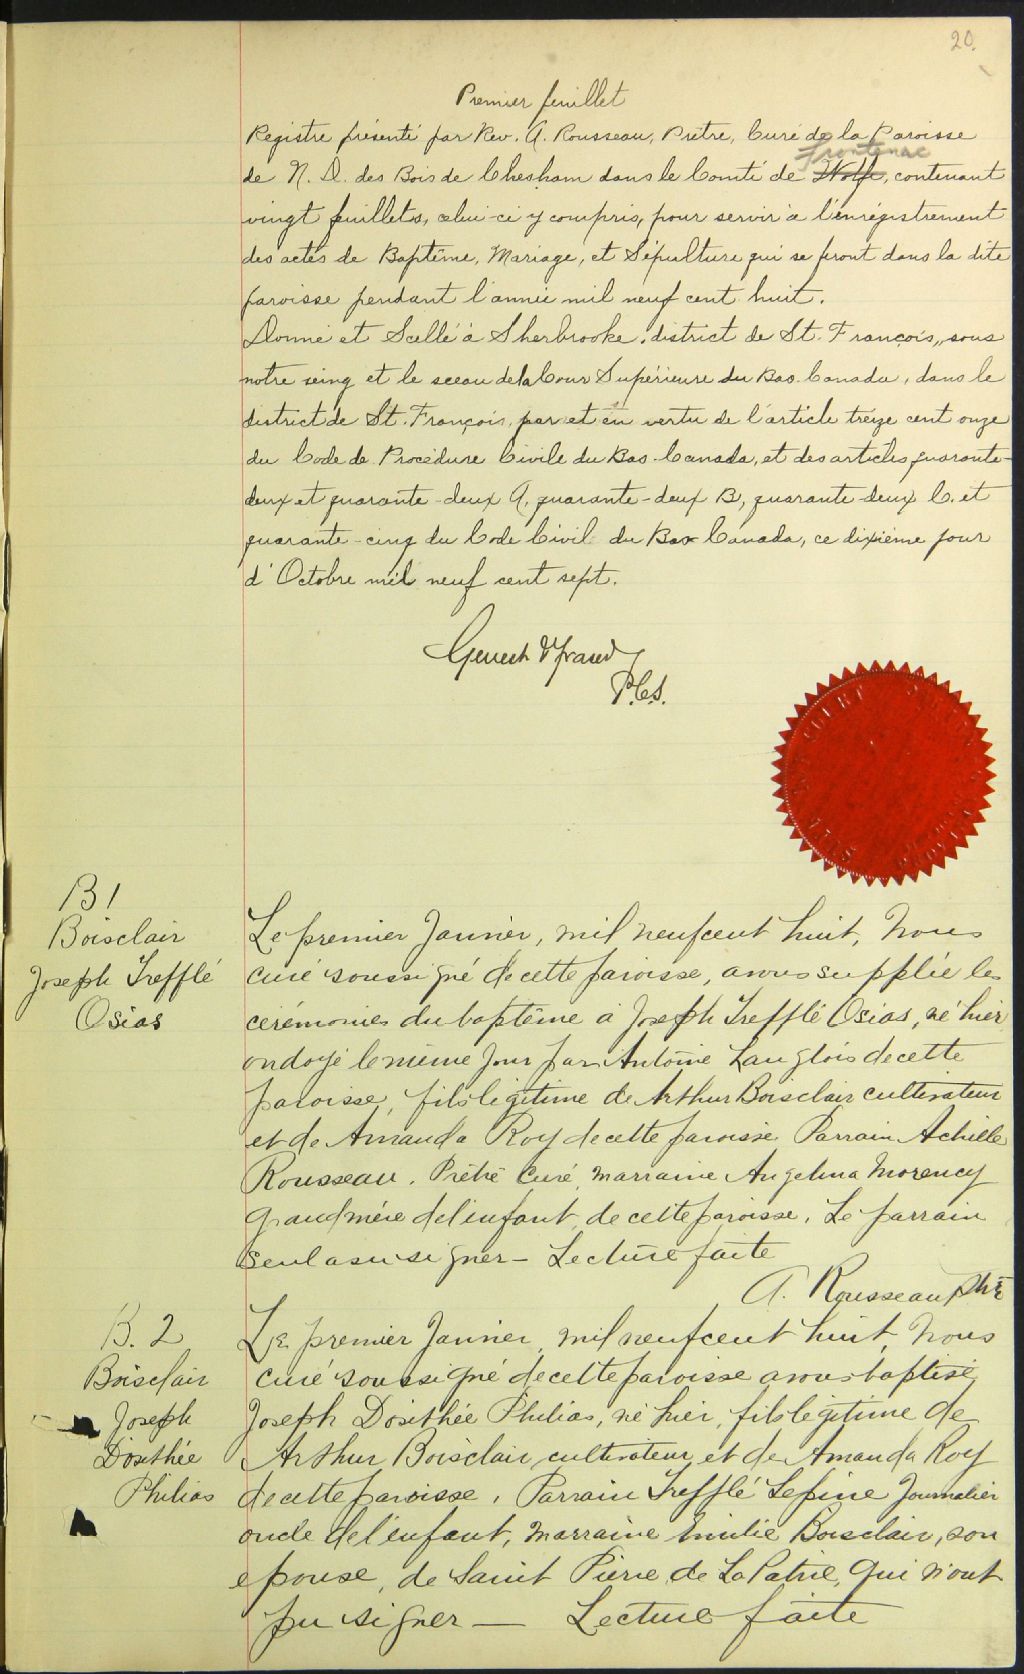 20.
Premier feuillet
Registre présenté par Rev. A. Rousseau, Prêtre, Curé de la Paroisse
Frontenac
de N. D. des Bois de Chesham dans le Comté de Wolfe, contenant
vingt feuillets, celui-ci y compris, pour servir à l'enrégistrement
des actes de Baptême, Mariage, et Sépulture qui se feront dans la dite
paroisse pendant l'année mil neuf cent huit.
Donné et Scellé à Sherbrooke, district de St. François, sous
notre seing et le sceau de la Cour Supérieure du Bas Canada, dans le
district de St. François, par et en vertu de l'article treize cent onze
du Code de Procédure Civile du Bas-Canada, et des articles quarante-
deux et quarante-deux A, quarante-deux B, quarante-deux C. et
quarante-cinq du Code Civil du Bas Canada, ce dixième jour
d'Octobre mil neuf cent sept.
P.C.S.
B 1
Boisclair
Joseph Trefflé
Osias
Le premier Janvier, mil neuf cent huit, Nous
curé soussigné de cette paroisse, avons supplée les
cérémonies du baptême à Joseph Trefflé Osias, né hier
ondoyé le même jour par Antoine Langlois de cette
paroisse, fils légitime de Arthur Boisclair cultivateur
et de Amanda Roy de cette paroisse Parrain Achille
Rousseau, Prêtre Curé, marraine Angelina Morency
grand mère de l'enfant, de cette paroisse. Le parrain
seul a su signer – Lecture faite
A. Rousseau Ptre
B. 2
Boisclair
Joseph
Dosithée
Philias
Le premier Janvier, mil neuf cent huit, Nous
curé soussigné de cette paroisse avons baptisé
Joseph Dosithée Philias, né hier, fils légitime de
Arthur Boisclair, cultivateur, et de Amanda Roy
de cette paroisse, Parrain Trefflé Lepine Journalier
oncle de l'enfant, marraine Emilie Boisclair, son
epouse, de Saint Pierre de La Patrie, qui n'ont
pu signer — Lecture faite